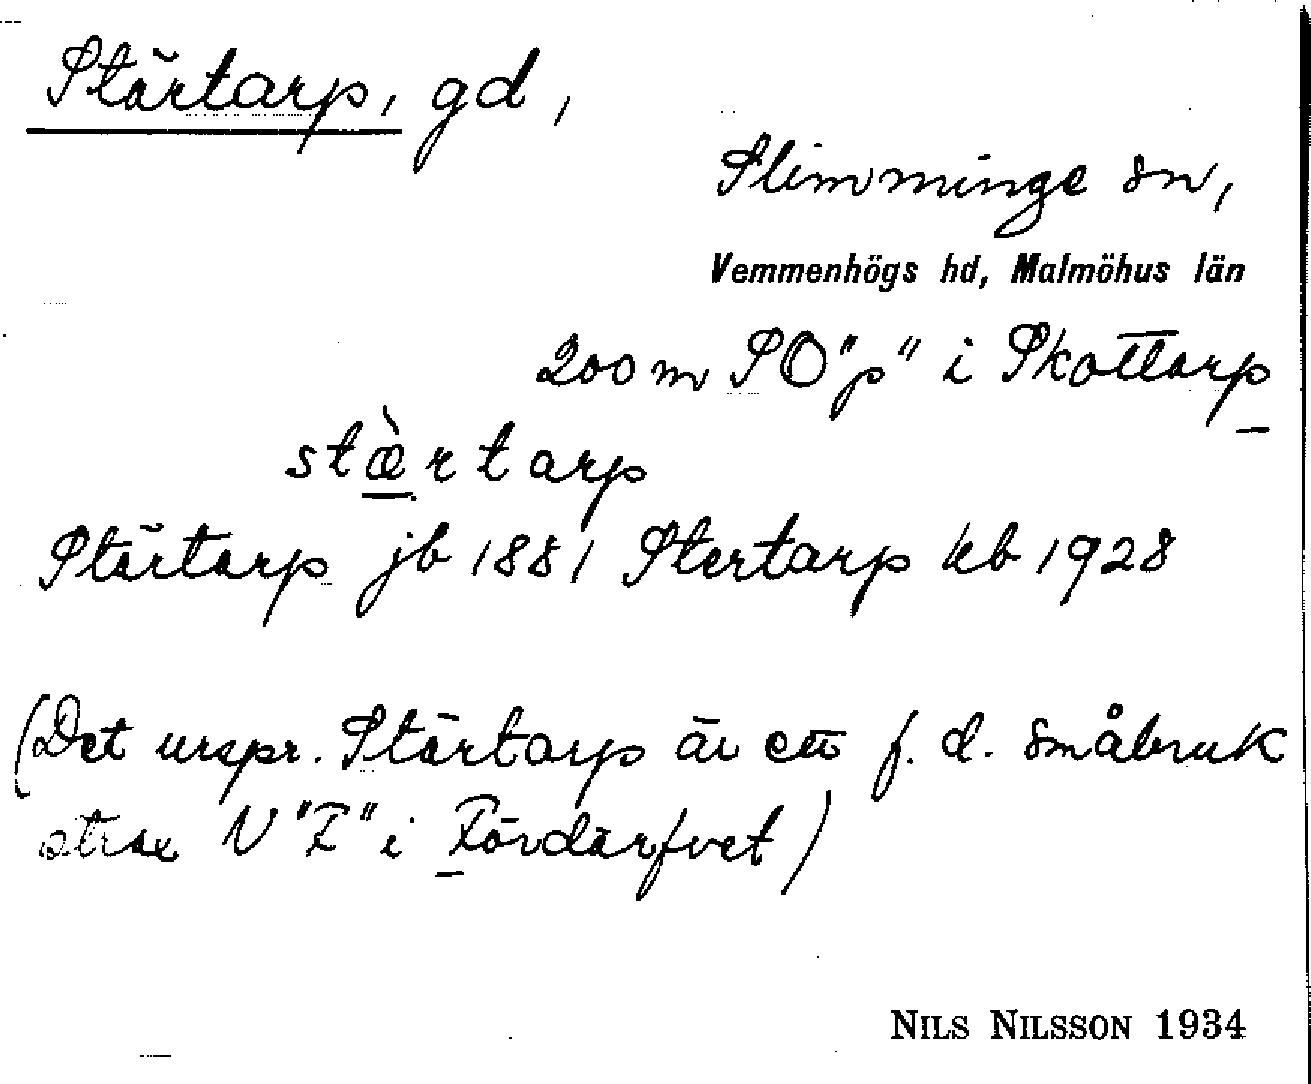 Stärtarp, gd,
Slimminge sn,
Vemmenhögs hd, Malmöhus län
200 m SO "p" i Skottarp
stæ̀rtarp
Stärtarp jb 1881 Stertarp kb 1928
(Det urspr. Stärtarp är ett f. d. småbruk
strax V "F" i Fördärfvet)
NILS NILSSON 1934